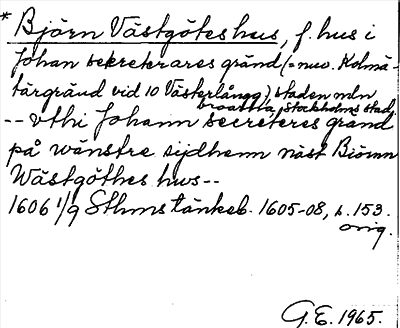 * Björn Västgötes hus, f. hus i
Johan sekreterares gränd (= nuv. Kolmä-
targränd vid 10 Västerlångg.) staden mln
broarna, Stockholms stad.
-- vthi Johann secreteres gränd
på wänstre sijdhenn näst Biörnn
Wästgöthes hws--
1606 1/9 Sthms tänkeb. 1605-08, s. 153.
orig.
G. E. 1965.